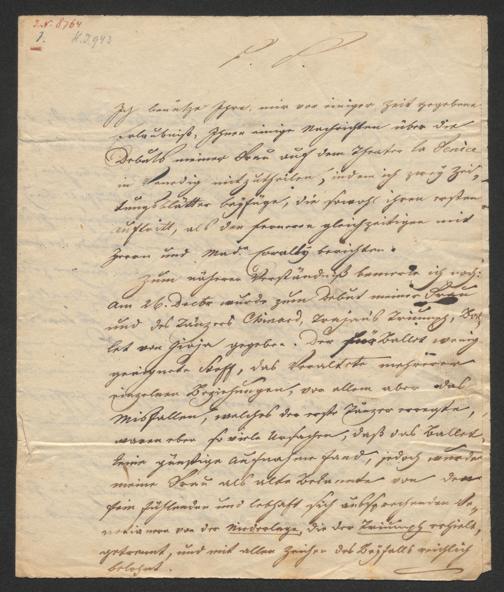 J. N. 8764
1. H.I. 943
P. P.
Ich benütze Ihre, mir vor einiger Zeit gegebene
Erlaubniß, Ihnen einige Nachrichten über die
Debuts meiner Frau auf dem Theater la Fenice
in Venedig mitzutheilen, indem ich zwey Zei-
tungsblätter beyfüge, die sowohl ihren ersten
Auftritt, als den ferneren gleichzeitigen mit
Herrn und Mad. Coralli berichten.
Zum näheren Verständniß bemerke ich noch:
Am 26. Decbr wurde zum Debut meiner Frau
und des Tänzers Chiaard, Trajans Triumph, Bal-
let von Gioja gegeben. Der fürs Ballet wenig
geeignete Stoff, das Veraltete mehrerer
einzelnen Beziehungen, vor allem aber das
Mißfallen, welches der erste Tänzer erregte,
waren eben so viele Ursachen, daß das Ballet
keine günstige Aufnahme fand, jedoch wurde
meine Frau als alte Bekannte von den
fein fühlenden und lebhaft sich aussprechenden Ve-
netianern von der Niederlage, die der Triumph erhielt,
getrennt, und mit allen Zeichen des Beyfalls reichlich
belohnt.